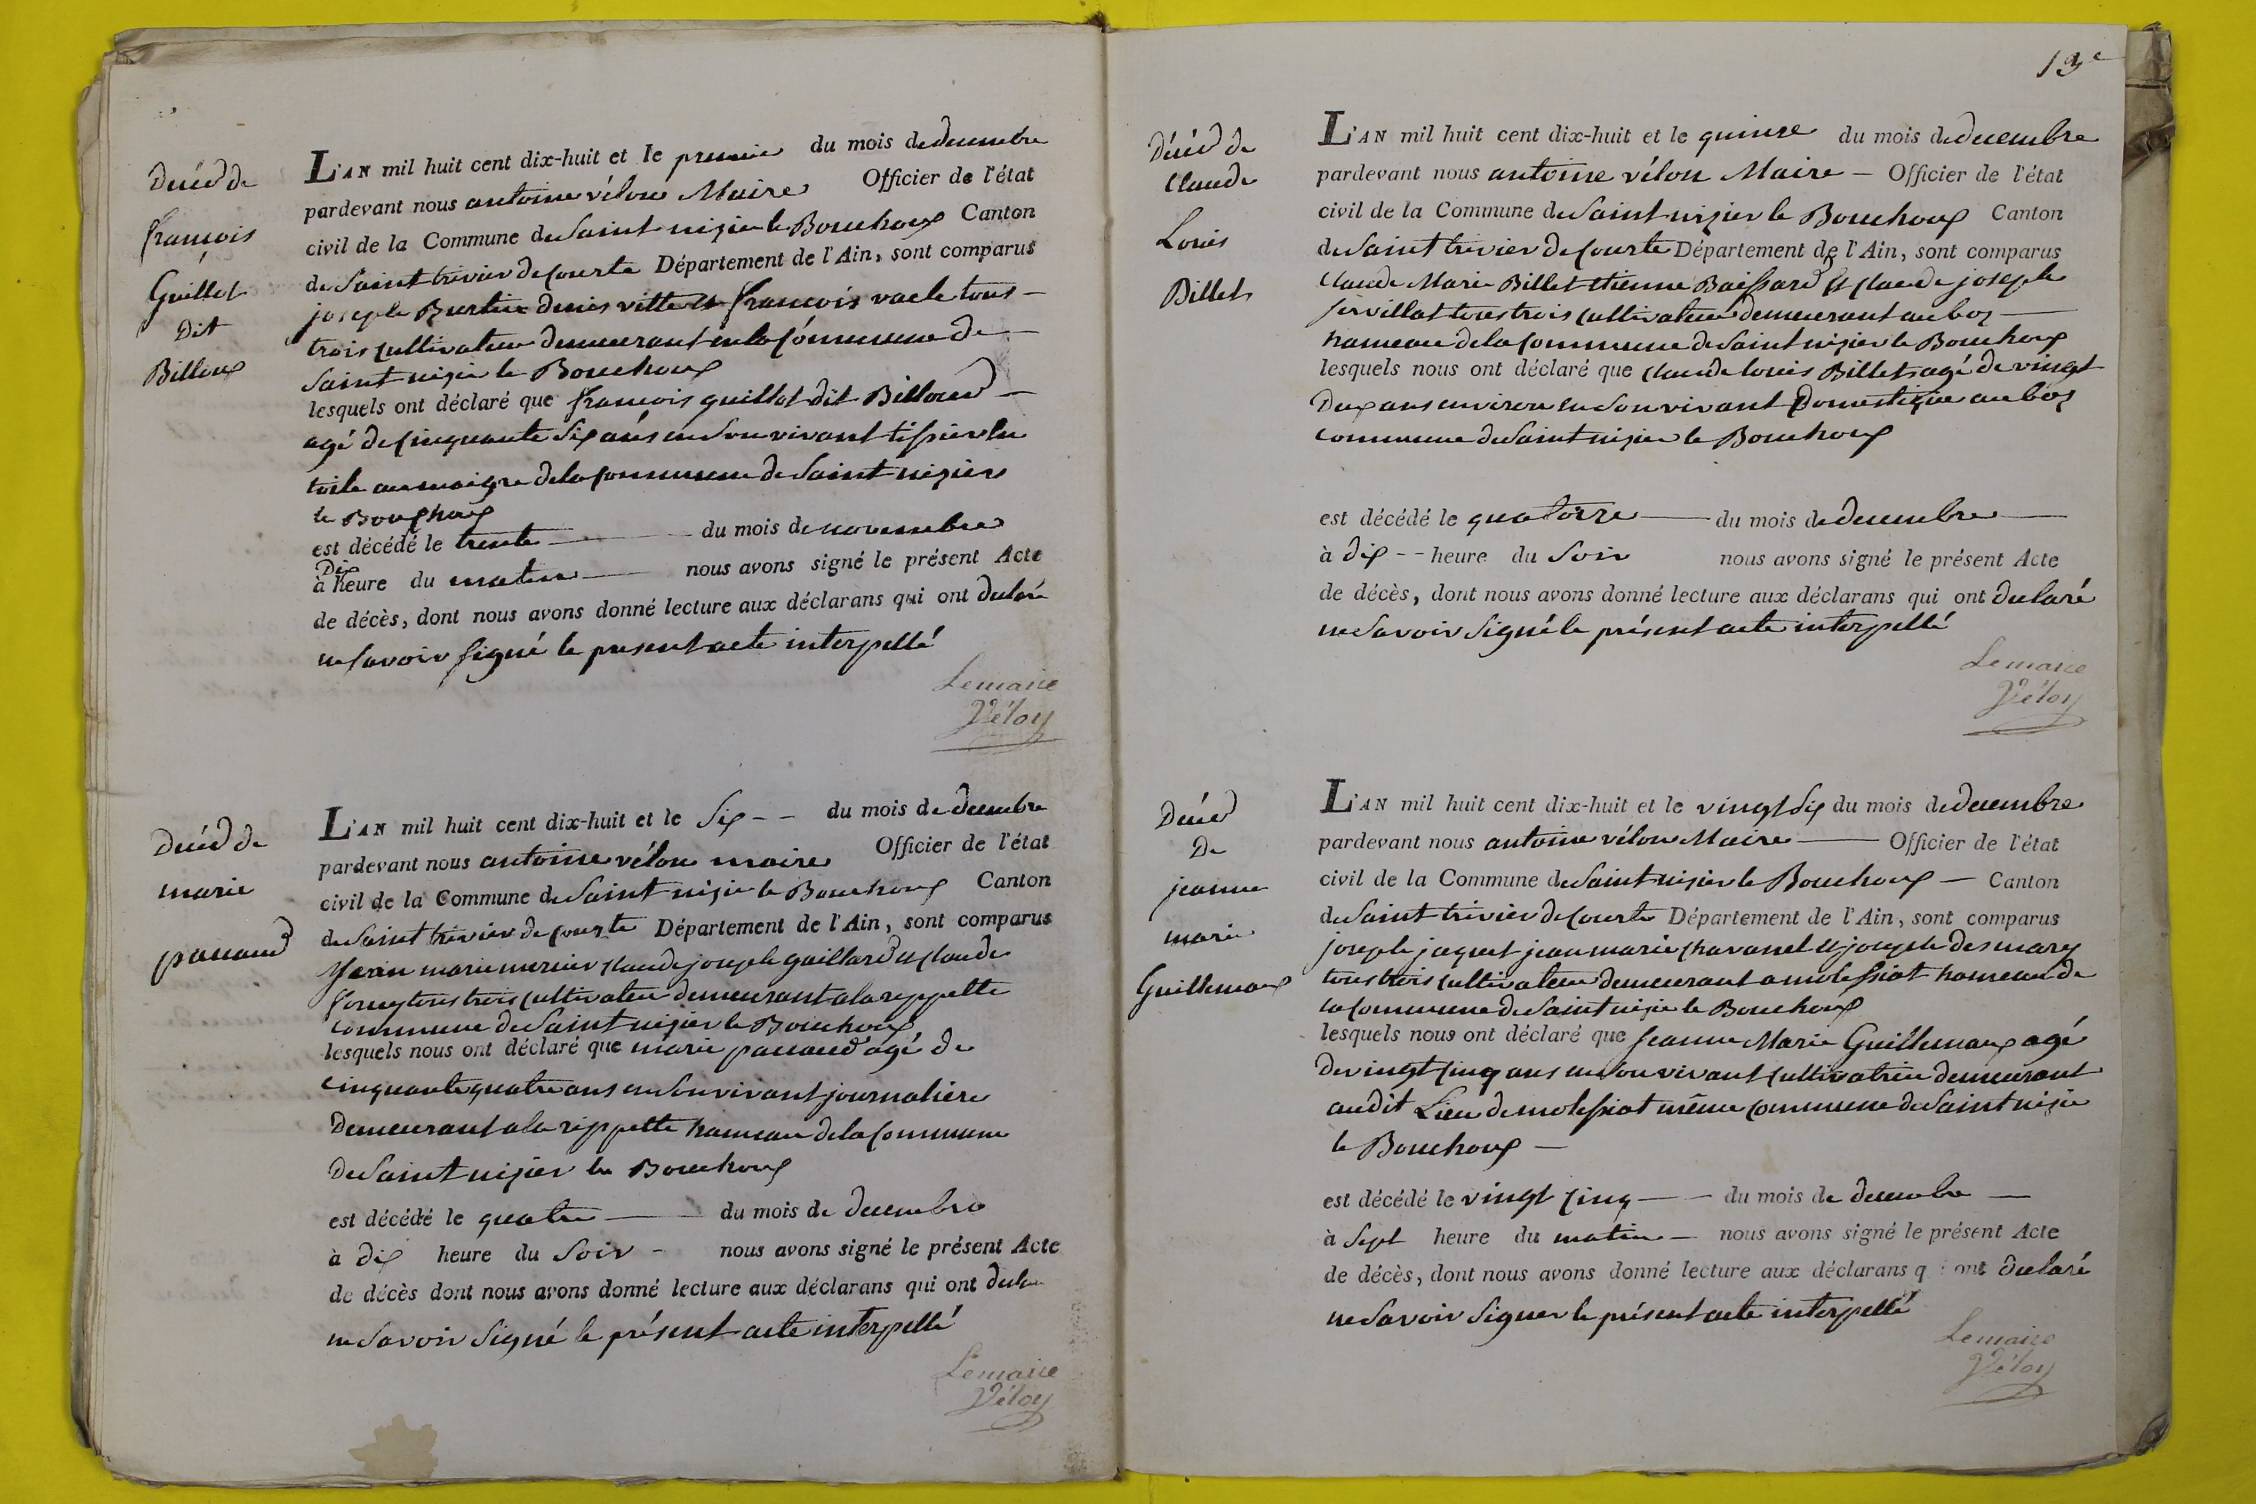 Décéd de
françois
Guillot
Dit
Billoux
L'AN mil huit cent dix-huit et le premier du mois de decembre
pardevant nous antoine vélon Maire Officier de l'état
civil de la Commune de Saint nizier le Bouchoux Canton
de Saint trivier de Courte Département de l'Ain, sont comparus
joseph Burtin denis vitte et francois vacle tous
trois cultivateur demeurant en la Commune de
Saint nizier le Bouchoux
lesquels ont déclaré que françois guillot dit Billoud
agé de cinquante six ans en son vivant tissier en
toile au maigre de la Commune de Saint nizier
le Bouchoux
est décédé le trente du mois de novembre
Dix
à heure du matin nous avons signé le présent Acte
de décès, dont nous avons donné lecture aux déclarans qui ont declaré
ne savoir signé le present acte interpellé
Lemaire
Véloy
Décéd de
marie
panaud
L'AN mil huit cent dix-huit et le Six du mois de decembre
pardevant nous antoine vélon maire Officier de l'état
civil de la Commune de Saint nizier le Bouchoux Canton
de Saint trivier de Courte Département de l'Ain, sont comparus
marie mercier claude joseph gaillard et claude
tous trois cultivateur demeurant a la rippette
commune de Saint nizier le Bouchoux
lesquels nous ont déclaré que marie panaud agé de
cinquante quatre ans en Son vivant journalière
Demeurant a la rippette hameau de la Commune
De Saint nizier le Bouchoux
est décédé le quatre du mois de decembre
à dix heure du Soir nous avons signé le présent Acte
de décès dont nous avons donné lecture aux déclarans qui ont decla
ne Savoir Signé le présent acte interpellé
Lemaire
Véloy
13e
Décéd de
Claude
Louis
Billet
L'AN mil huit cent dix-huit et le quinze du mois de decembre
pardevant nous antoine vélon Maire Officier de l'état
civil de la Commune de Saint nizier le Bouchoux Canton
de Saint trivier de Courte Département de l'Ain, sont comparus
Claude Marie Billet etienne Baissard et claude joseph
servillat tous trois cultivateur demeurant au boz
hameau de la Commune de Saint nizier le Bouchoux
lesquels nous ont déclaré que claude louis Billet agé de vingt
Deux ans environ en Son vivant Domestique au boz
commune de Saint nizier le Bouchoux
est décédé le quatorze du mois de decembre
à dix heure du Soir nous avons signé le présent Acte
de décès, dont nous avons donné lecture aux déclarans qui ont declaré
ne Savoir Signé le présent acte interpellé
Lemaire
Véloy
Décéd
De
jeanne
marie
Guillemaux
L'AN mil huit cent dix-huit et le vingt Six du mois de decembre
pardevant nous antoine vélon Maire Officier de l'état
civil de la Commune de Saint nizier le Bouchoux Canton
de Saint trivier de Courte Département de l'Ain, sont comparus
joseph jaquet jean marie chavanel et joseph desmary
tous trois cultivateur demeurant a molessiat hameau de
la Commune de Saint nizier le Bouchoux
lesquels nous ont déclaré que Jeanne Marie Guillemaux agé
De vingt cinq ans en Son vivant cultivatrice demeurant
audit Lieu de molessiat même commune de Saint nizie
le Bouchoux
est décédé le vingt cinq du mois de decembre
à Sept heure du matin nous avons signé le présent Acte
de décès, dont nous avons donné lecture aux déclarans q i ont declaré
ne Savoir Signer le présent acte interpellé
Lemaire
Véloy